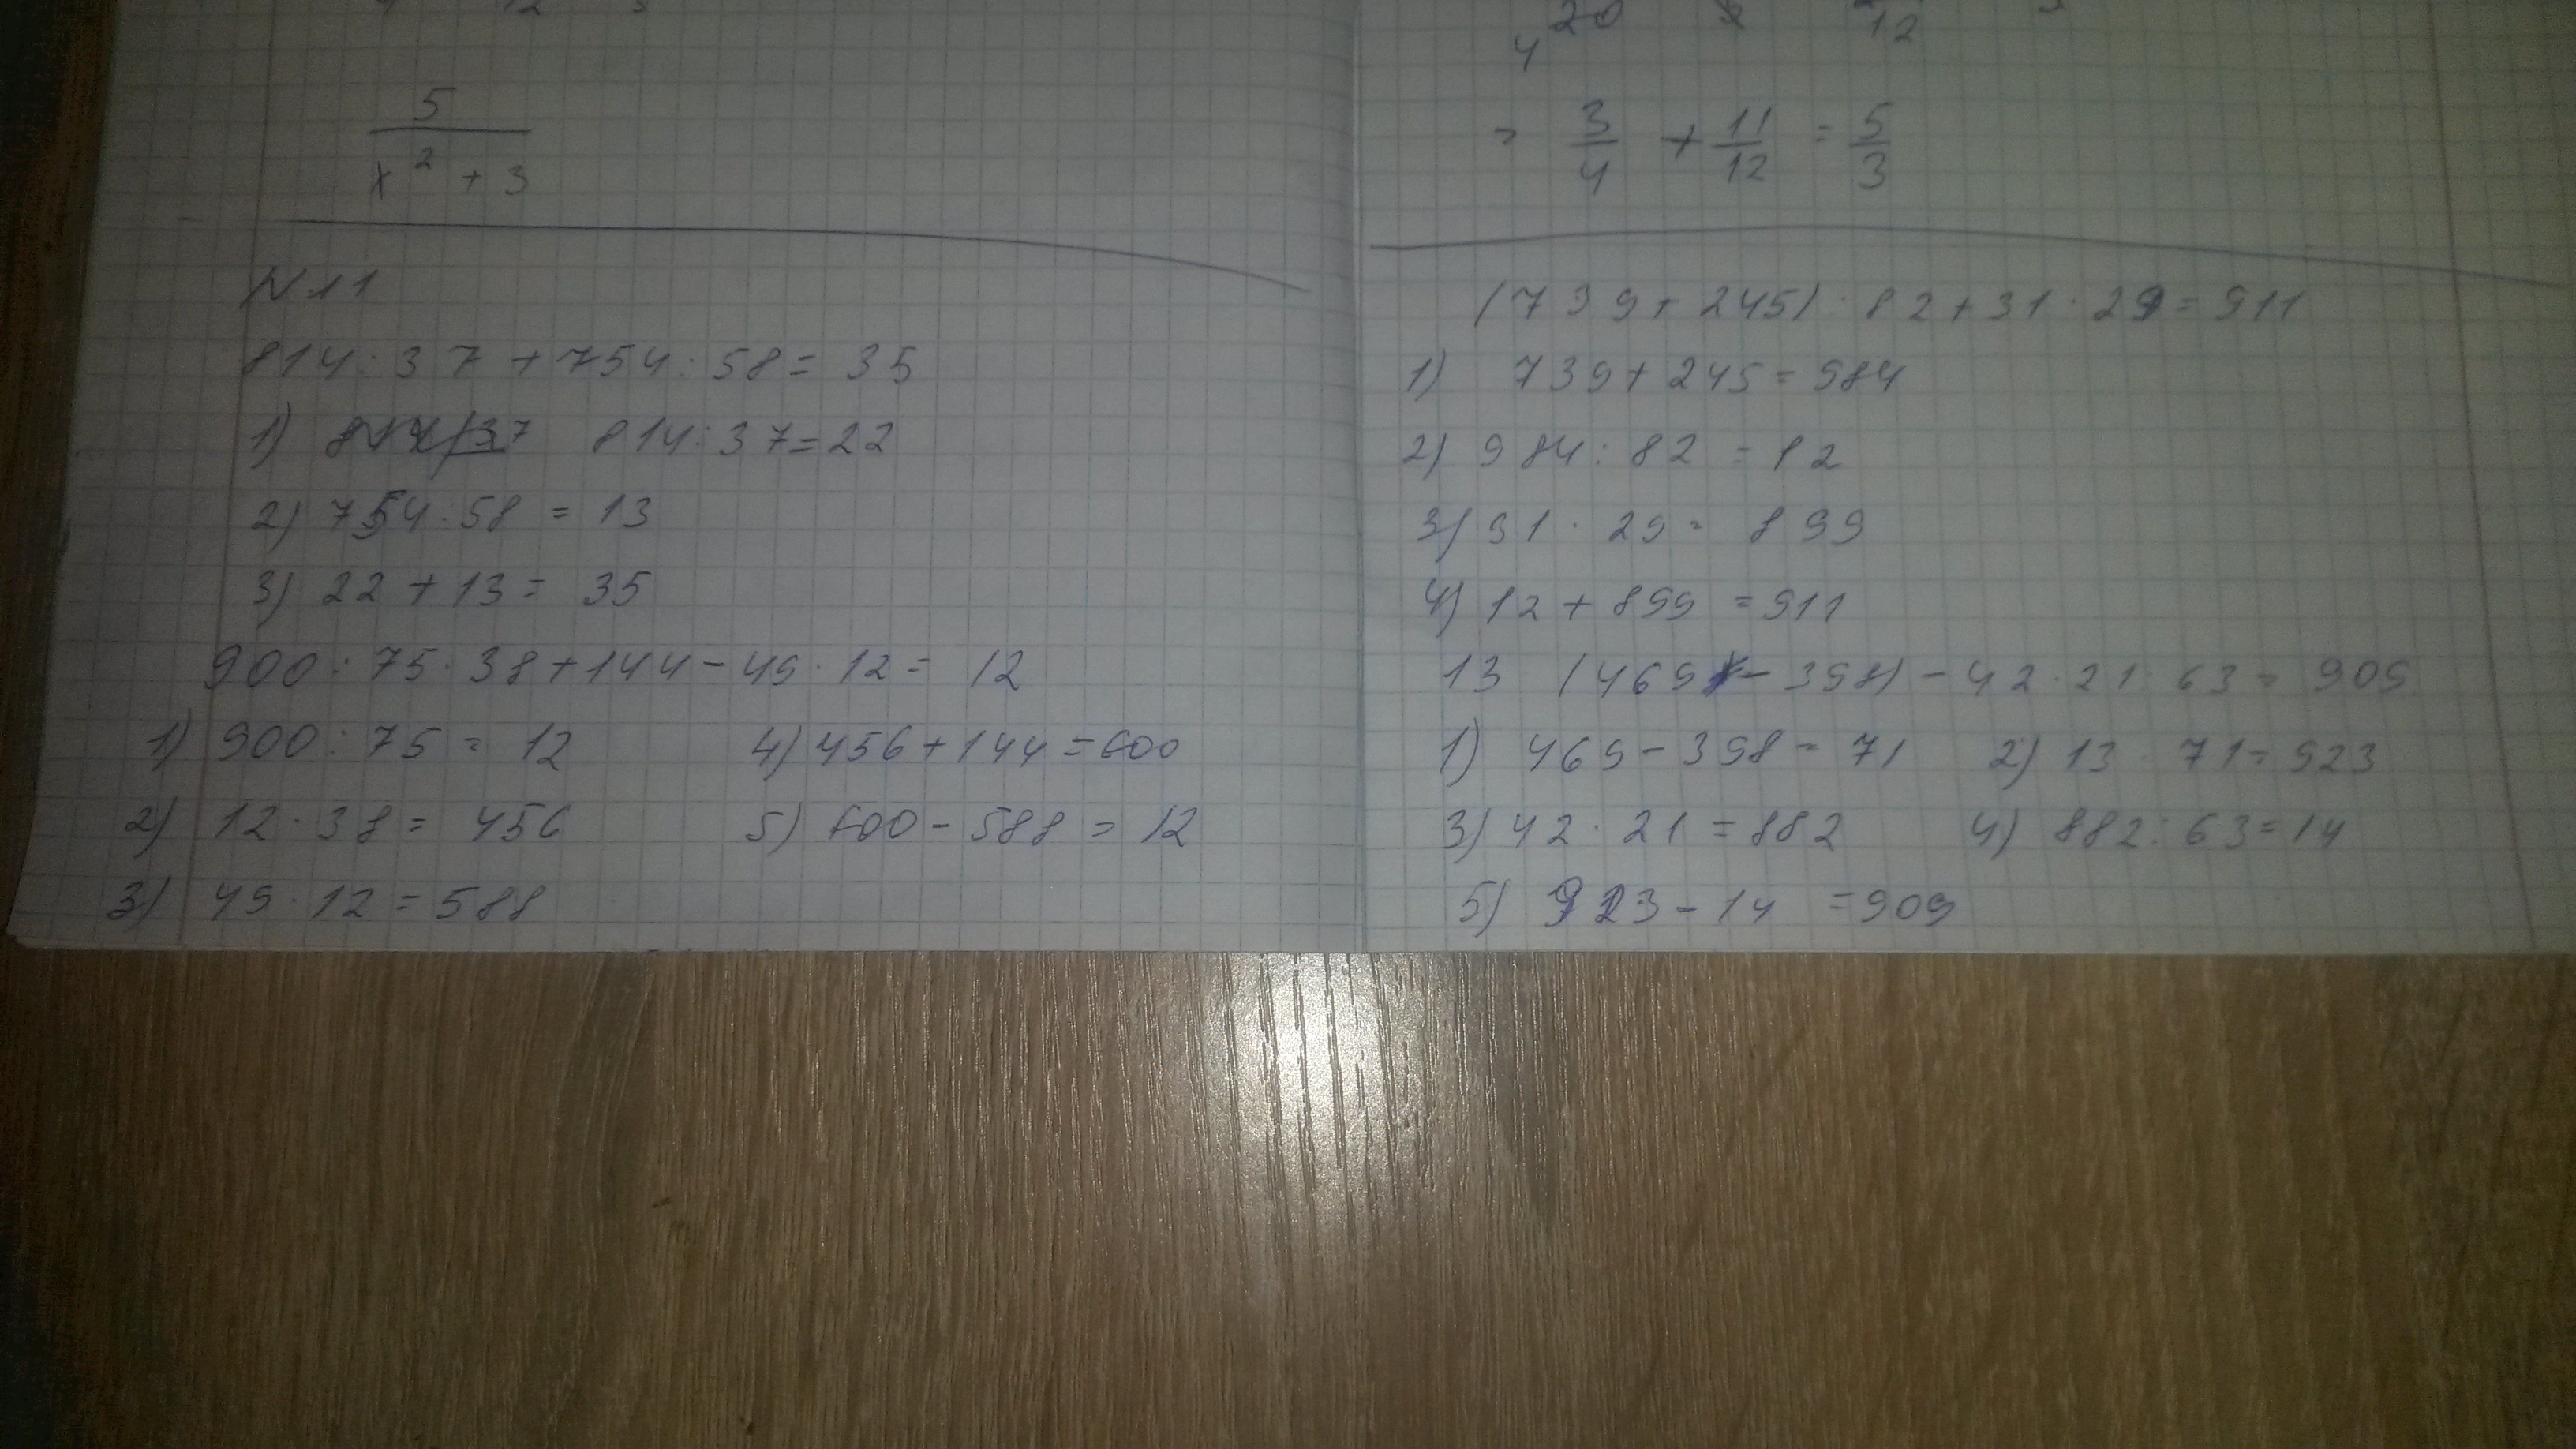 5
x² + 3
N 11
814 : 37 + 754 : 58 = 35
1) 814 : 37 = 22
2) 754 : 58 = 13
3) 22 + 13 = 35
900 : 75 · 38 + 144 - 49 · 12 = 12
1) 900 : 75 = 12 4) 456 + 144 = 600
2) 12 · 38 = 456 5) 600 - 588 = 12
3) 49 · 12 = 588
4 20 12
= 3/4 + 11/12 = 5/3
(739 + 245) : 82 + 31 · 29 = 911
1) 739 + 245 = 984
2) 984 : 82 = 12
3) 31 · 29 = 899
4) 12 + 899 = 911
13 (469 - 398) - 42 · 21 : 63 = 909
1) 469 - 398 = 71 2) 13 · 71 = 923
3) 42 · 21 = 882 4) 882 : 63 = 14
5) 923 - 14 = 909